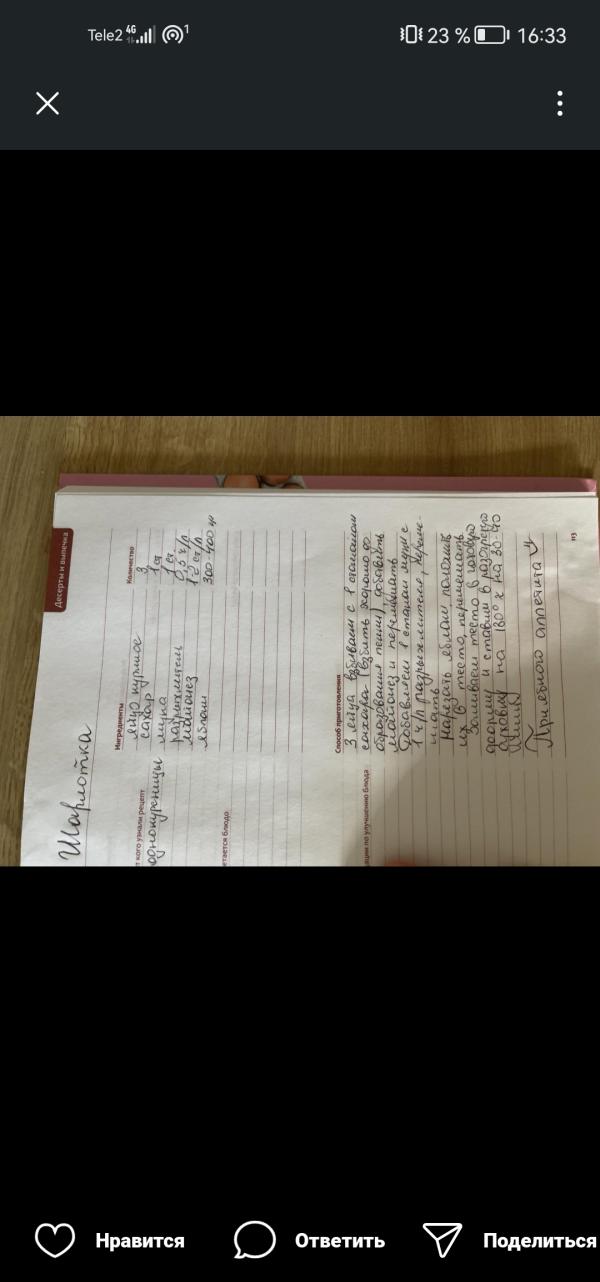 Tele2 4G 1 23 % 16:33
Десерты и выпечка
Шарлотка
Ингредиенты Количество
яйцо куриное 3
сахар 1 ст
мука 1 ст
разрыхлитель 0,5 ч/л
майонез 1-2 ст/л
яблоки 300-400 гр
т кого узнали рецепт
однокурсницы
етается блюдо
Способ приготовления
3 яйца взбиваем с 1 стаканом
сахара (взбить хорошо до
образования пены), добавить
майонез и перемешать
Добавляем 1 стакан муки с
1 ч/л разрыхлителя,
нарезать яблоки положить
их в тесто, перемешать
Заливаем тесто в
форму и ставим в разогретую
духовку на 180° х на 30-40
минут
Приятного аппетита
ции по улучшению блюда
113
Нравится Ответить Поделиться